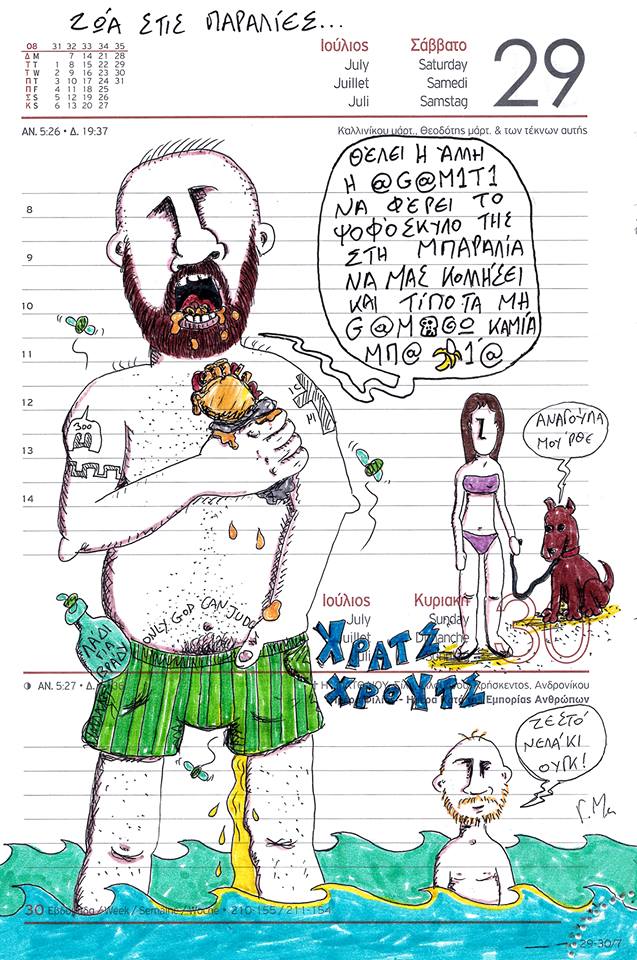 ΖΩΆ ΣΤΙΣ ΠΑΡΑΛΊΕΣ...
08 31 32 33 34 35
Δ M 7 14 21 28
Τ T 1 8 15 22 29
Τ W 2 9 16 23 30
Π T 3 10 17 24 31
Π F 4 11 18 25
Σ S 5 12 19 26
Κ S 6 13 20 27
Ιούλιος Σάββατο 29
July Saturday
Juillet Samedi
Juli Samstag
ΑΝ. 5:26 • Δ. 19:37
Καλλινίκου μάρτ., Θεοδότης μάρτ. & των τέκνων αυτής
ΘΈΛΕΙ Η ΆΛΛΗ
Η @G@M1T1
ΝΑ ΦΈΡΕΙ ΤΟ
ΨΟΦΌΣΚΥΛΟ ΤΗΣ
ΣΤΗ ΜΠΑΡΑΛΊΑ
ΝΑ ΜΑΣ ΚΟΛΛΉΣΕΙ
ΚΑΙ ΤΊΠΟΤΑ ΜΗ
G@M @Ω ΚΑΜΊΑ
ΜΠ@ 1΄@
8
9
10
11
12
13
14
300
ΑΝΑΓΟΎΛΑ
ΜΟΥ ΡΘΕ
ONLY GOD CAN JUDG
ΛΑΔΙ
ΓΙΑ
ΒΡΑΣΥ
Ιούλιος Κυριακή 30
July Sunday
ΧΡΑΤΣ
ΧΡΟΥΤΣ
ΑΝ. 5:27 • Δ.
Ανδρονίκου
Εμπορίας Ανθρώπων
ΖΕΣΤΌ
ΝΕΛΆΚΙ
ΟΥΡΓΚ!
30 Εβδομάδα / Week / Semaine / Woche • 210-155 / 211-154
29-30/7